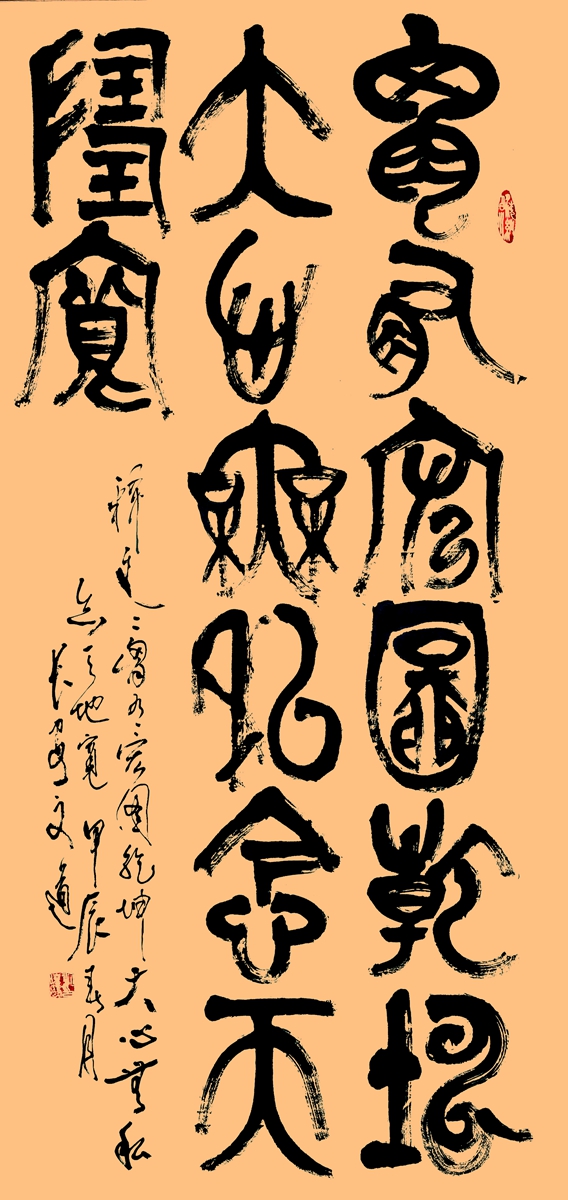 胸有宏圖乾坤
大心無私念天
地寬
釋文胸有宏圖乾坤大心無私
念天地寬 甲辰春月
文道